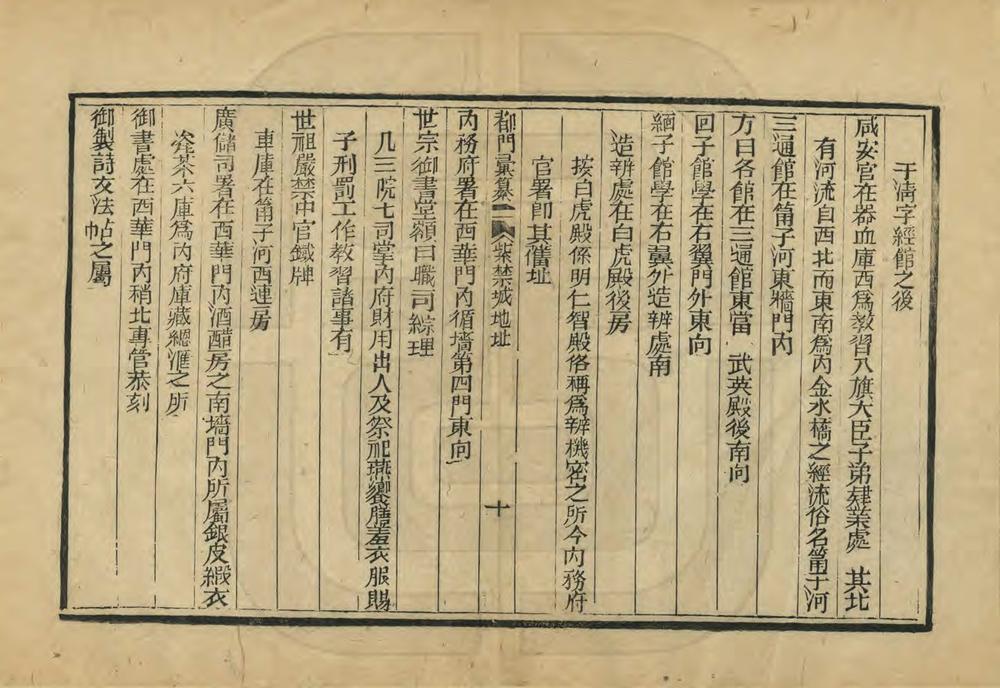 于淸字經館之後
咸安宮在器血庫西爲敎習八旗大臣子弟肄業處　其北
有河流自西北而東南爲內金水橋之經流俗名筩子河
三通館在筩子河東牆門內
方㠯各館在三通館東當　武英殿後南向
回子館學在右翼門外東向
緬子館學在右翼外造辦處南
造辦處在白虎殿後房
按白虎殿係明仁智殿俗稱爲辦機密之所今內務府
官署卽其舊址
都門彙纂　紫禁城地址　十
內務府署在西華門內循墻第四門東向
世宗御書堂額曰職司綜理
凡三院七司掌內府財用出入及祭祀燕饗膳羞衣服賜
予刑罰工作敎習諸事有
世祖嚴禁中官鐵牌
車庫在筩子河西連房
廣儲司署在西華門內酒醋房之南墻門內所屬銀皮緞衣
瓷茶六庫爲內府庫藏總滙之所
御書處在西華門內稍北專管恭刻
御製詩文法帖之屬